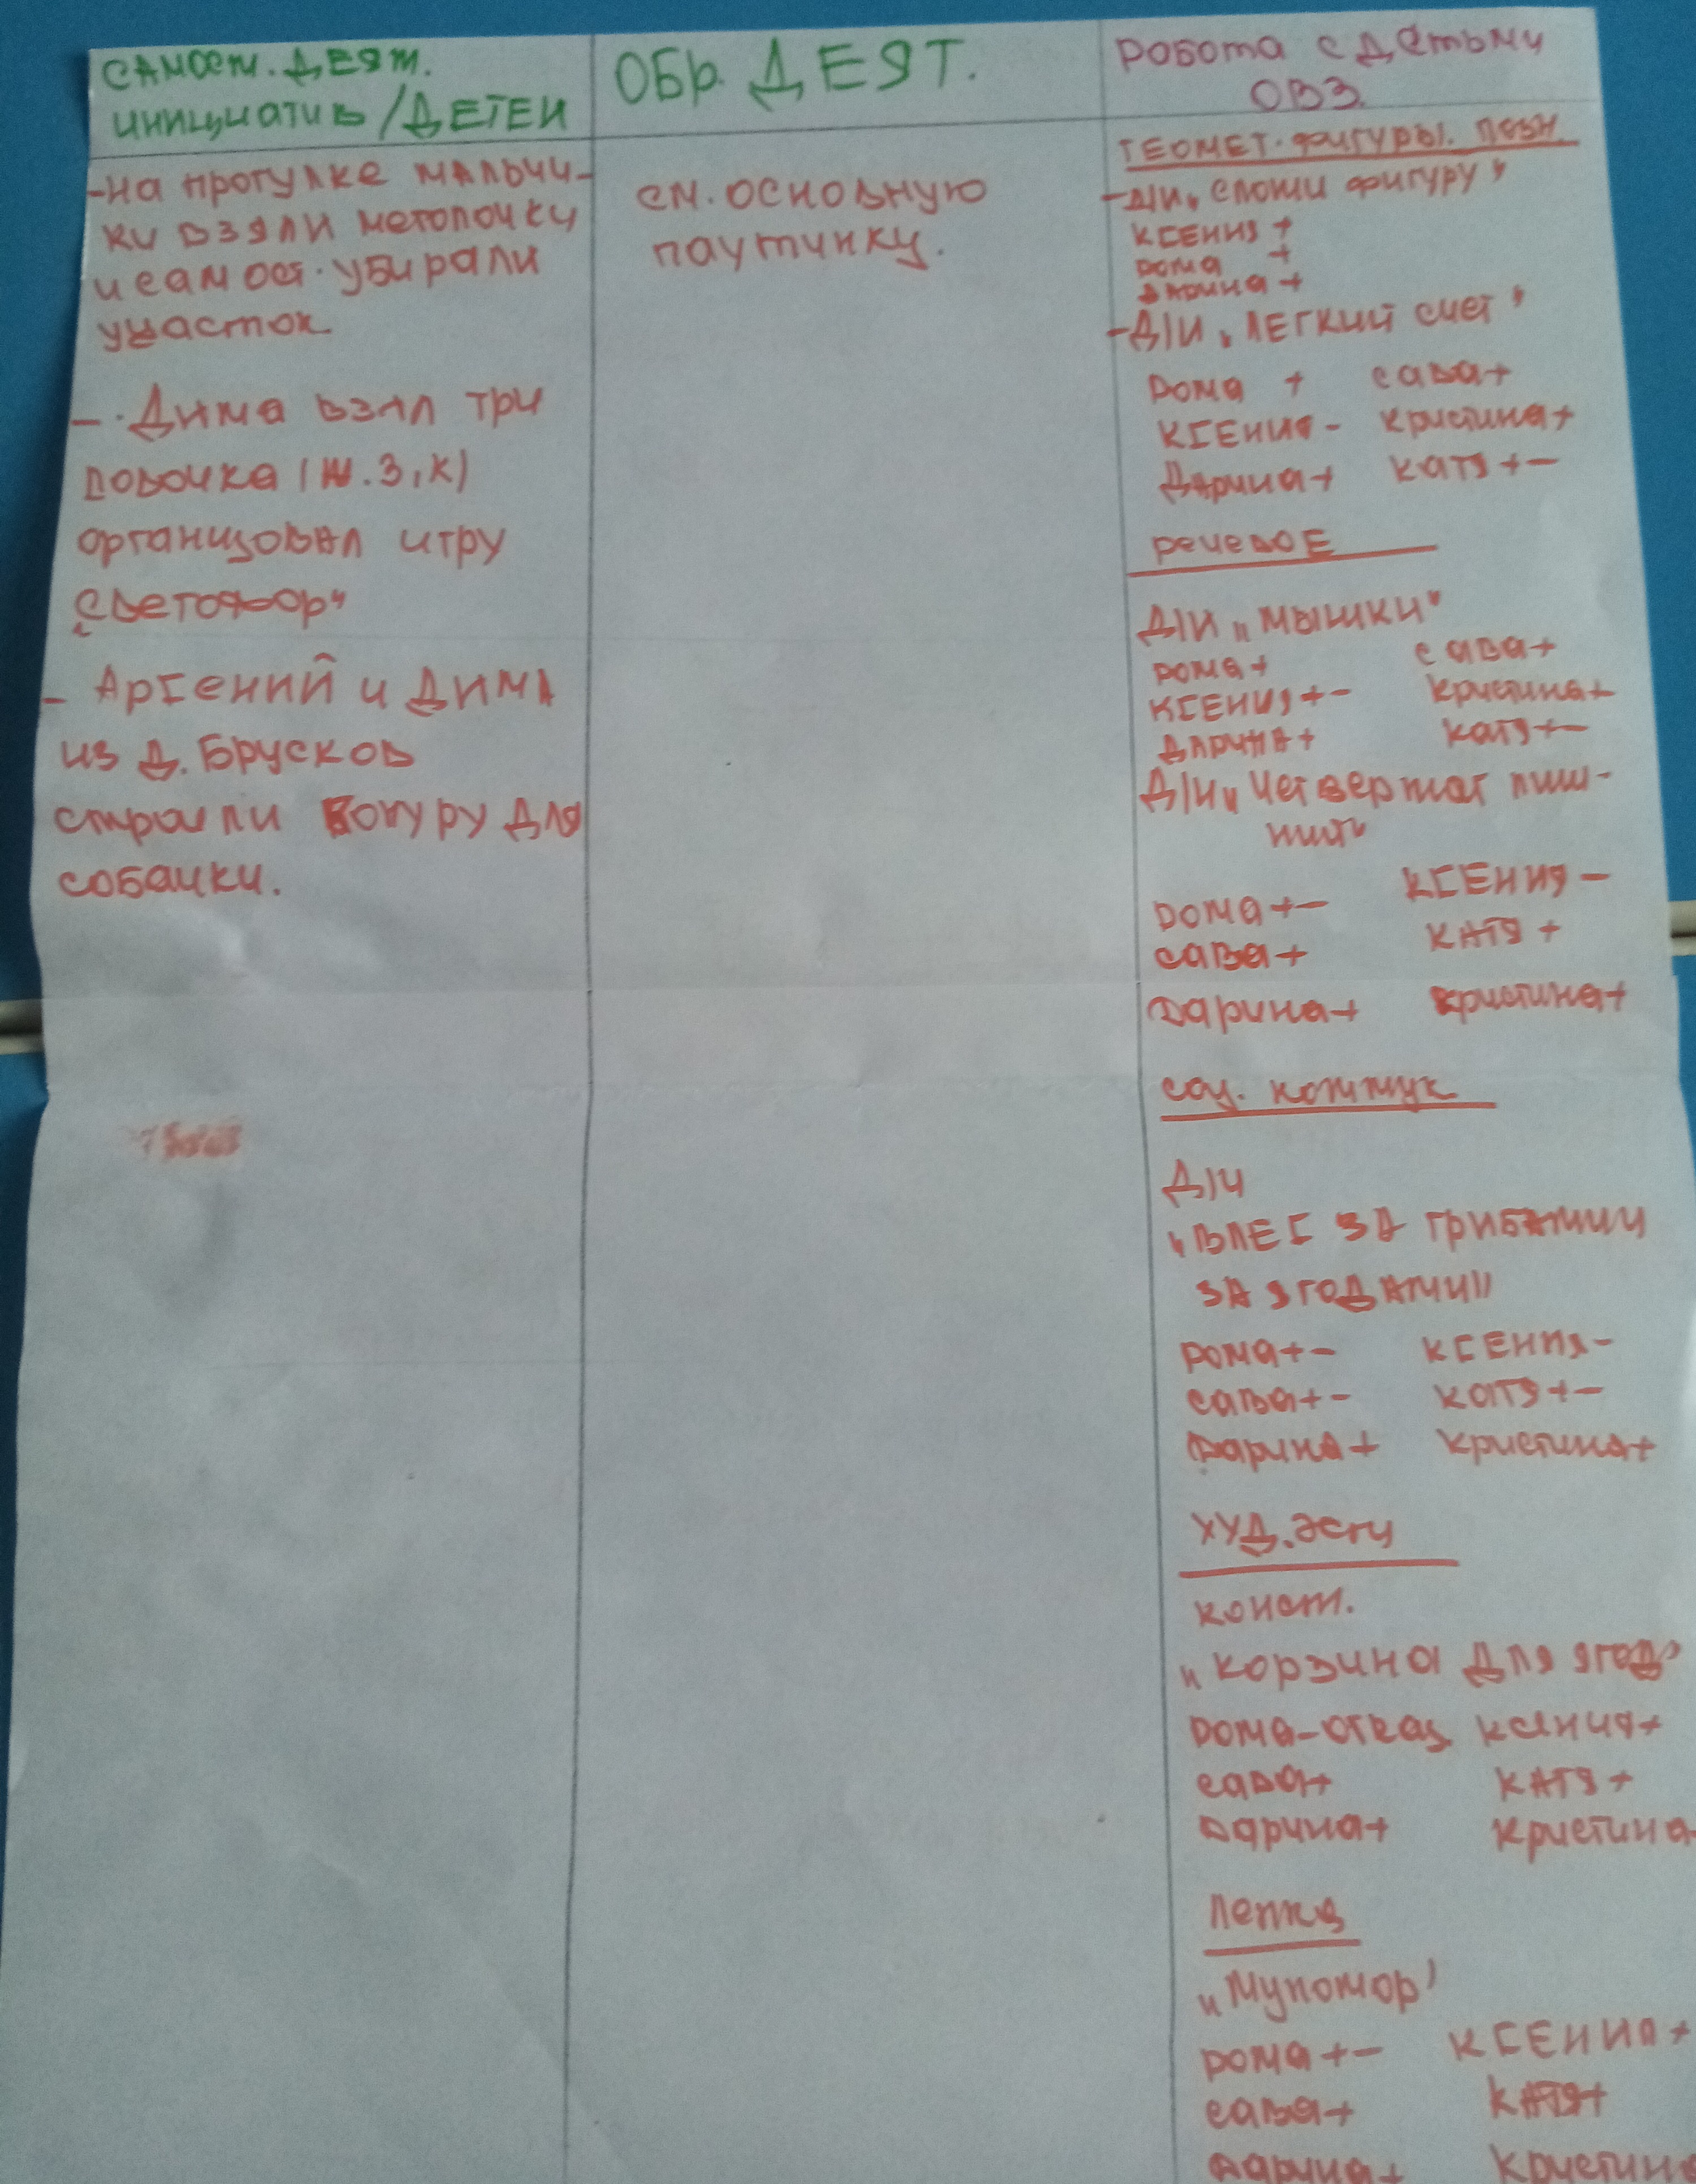 САМОСТ. ДЕЯТ.
ИНИЦИАТИВ/ДЕТЕЙ
-НА ПРОГУЛКЕ МАЛЬЧИ-
КИ ВЗЯЛИ МЕТОЛОЧКУ
И САМОСТ. УБИРАЛИ
УЧАСТОК
- ДИМА ВЗЯЛ ТРИ
(Ж.З,К)
ОРГАНИЗОВАЛ ИГРУ
„СВЕТОФОР"
- АРСЕНИЙ И ДИМА
ИЗ Д. БРУСКОВ
СТРОИЛИ КОНУРУ ДЛЯ
СОБАЧКИ.
ОБР. ДЕЯТ.
СМ. ОСНОВНУЮ
ПАУТИНКУ.
РОБОТА С ДЕТЬМИ
ОВЗ.
ГЕОМЕТ. ФИГУРЫ. ПОЗН.
-Д/И „СЛОЖИ ФИГУРУ"
КСЕНИЯ +
РОМА +
ДАРИНА +
-Д/И „ЛЕГКИЙ СЧЕТ"
РОМА + САВА+
КСЕНИЯ- КРИСТИНА+
ДАРИНА+ КАТЯ+-
РЕЧЕВОЕ
Д/И „МЫШКИ"
РОМА+ САВА+
КСЕНИЯ+- КРИСТИНА+
ДАРИНА+ КАТЯ+-
Д/И „ЧЕТВЕРТЫЙ ЛИШ-
НИЙ"
РОМА+- КСЕНИЯ-
САВА+ КАТЯ+
ДАРИНА+ КРИСТИНА+
СОЦ. КОММУК
Д/И
„В ЛЕС ЗА ГРИБАМИ И
ЗА ЯГОДАМИ"
РОМА+- КСЕНИЯ-
САВА+- КАТЯ+-
ДАРИНА+ КРИСТИНА+
ХУД. ЭСТЦ
КОНСТ.
„КОРЗИНА ДЛЯ ЯГОД"
РОМА-ОТКАЗ КСЕНИЯ+
САВА+ КАТЯ+
ДАРИНА+ КРИСТИНА+
ЛЕПКА
„МУХОМОР"
РОМА+- КСЕНИЯ+
САВА+ КАТЯ+
ДАРИНА+ КРИСТИНА